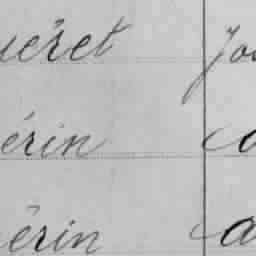 uéret Jos
érin a
érin a